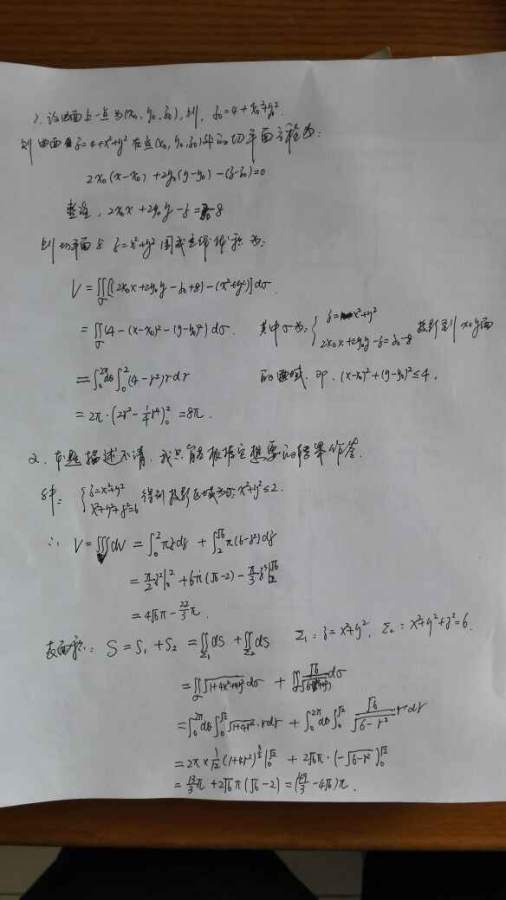 1. 设曲面上一点为(x₀, y₀, z₀), 则, z₀=4+x₀²+y₀².
则曲面 z=4+x²+y² 在点(x₀, y₀, z₀)处的切平面方程为:
2x₀(x-x₀)+2y₀(y-y₀)-(z-z₀)=0
整理, 2x₀x+2y₀y-z=z₀-8
则切平面与 z=x²+y² 围成立体体积为:
V=∬σ[(2x₀x+2y₀y-z₀+8)-(x²+y²)]dσ
=∬σ(4-(x-x₀)²-(y-y₀)²)dσ. 其中σ为: { z=x²+y²
2x₀x+2y₀y-z=z₀-8 投影到xoy面
=∫₀^2π dθ∫₀^2 (4-r²)rdr 的区域. 即. (x-x₀)²+(y-y₀)²≤4.
=2π·(2r²-¼r⁴)|₀²=8π.
2. 本题描述不清, 我只能根据它想要的结果作答.
{ z=x²+y²
x²+y²+z²=6 得到投影区域为σ: x²+y²≤2.
∴ V=∭dv=∫₀^2 πzdz+∫₂^√6 π(6-z²)dz
=π/2 z²|₀²+6π(√6-2)-π/3 z³|₂^√6
=4√6π-22/3 π.
表面积: S=S₁+S₂=∬Σ₁ds+∬Σ₂ds Σ₁: z=x²+y², Σ₂: x²+y²+z²=6.
=∬σ√(1+4x²+4y²)dσ+∬σ √6/√(6-(x²+y²)) dσ
=∫₀^2π dθ∫₀^√2 √(1+4r²)·rdr+∫₀^2π dθ∫₀^√2 √6/√(6-r²) rdr
=2π×1/12(1+4r²)^3/2|₀^√2+2√6π·(-√(6-r²))|₀^√2
=13/3 π+2√6π(√6-2)=(49/3-4√6)π.